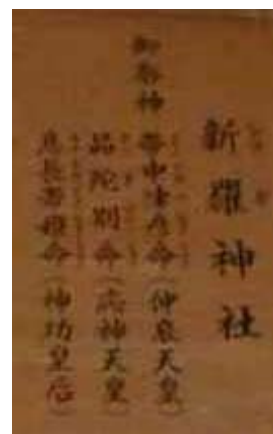 新羅神社
御祭神 帯中津彦命（仲哀天皇）
品陀別命（応神天皇）
息長帯姫命（神功皇后）